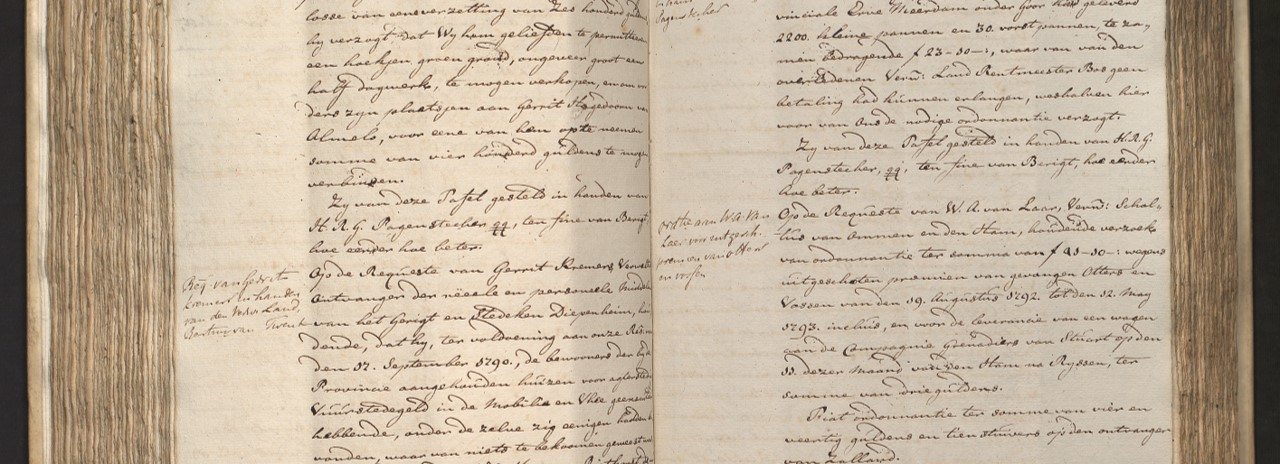 losse van eene verzetting van Zes honderd
hy verzogt dat Wy hem geliefden te permitteeren
een hoekjen groen grond, ongeveer groot een
half dagwerk, te mogen verkopen, en om
ders zyn plaatsjen aan Gerrit Hagedoorn van
Almelo, voor eene van hem op te neemen
somme van vier honderd guldens te mogen
verbinden.
Zy van deze Tafel gesteld in handen van
H. R. G. Pagenstecher, ten fine van Berigt
hoe eerder hoe beter.
Op de Requeste van Gerrit Kremers
Ontvanger der reëele en personeele
van het Gerigt en Stedeken Diepenheim, hou
dende, dat hy, ter voldoening aan onze
den 17. September 1790., de bewooners der
Provincie aangehouden huizen voor agterstedig
Vuurstedegeld in de Mobilia en Vhee
hebbende, onder de zelve zig eenigen hadden
vonden, waar van niets te bekoomen geweest
Req van Gerrit
Kremers in handen
van den Land
Rentmr van Twent
Pagenstecher
vinciale Erve Meerdam onder Goor had geleverd
2200. kleine pannen en 30. vorstpannen te za„
men bedragende f 23-10-:, waar van van den
overledenen Verw: Land Rentmeester Bos geen
betaling had kunnen erlangen, weshalven hier
voor van Ons de nodige ordonnantie verzogt.
Zy van deze Tafel gesteld in handen van H. R. G.
Pagenstecher, ten fine van Berigt, hoe eerder
hoe beter.
Op de Requeste van W. A. van Laar, Verw: Schol„
tus van Ommen en den Ham, houdende verzoek
van ordonnantie ter somma van f 41-10-: wegens
uitgeschoten premien van gevangen Otters en
Vossen van den 19. Augustus 1792. tot den 12. May
1793. incluis, en voor de leverancie van een wagen
aan de Compagnie Grenadiers van Stuart op den
11. dezer Maand van den Ham na Ryssen, ter
somme van drie guldens.
Fiat ordonnantie ter somme van vier en
veertig guldens en tien stuivers op den ontvanger
van Zalland.
ordtie aan W. A. van
Laer voor uitgesch.
premien van otters
en vossen